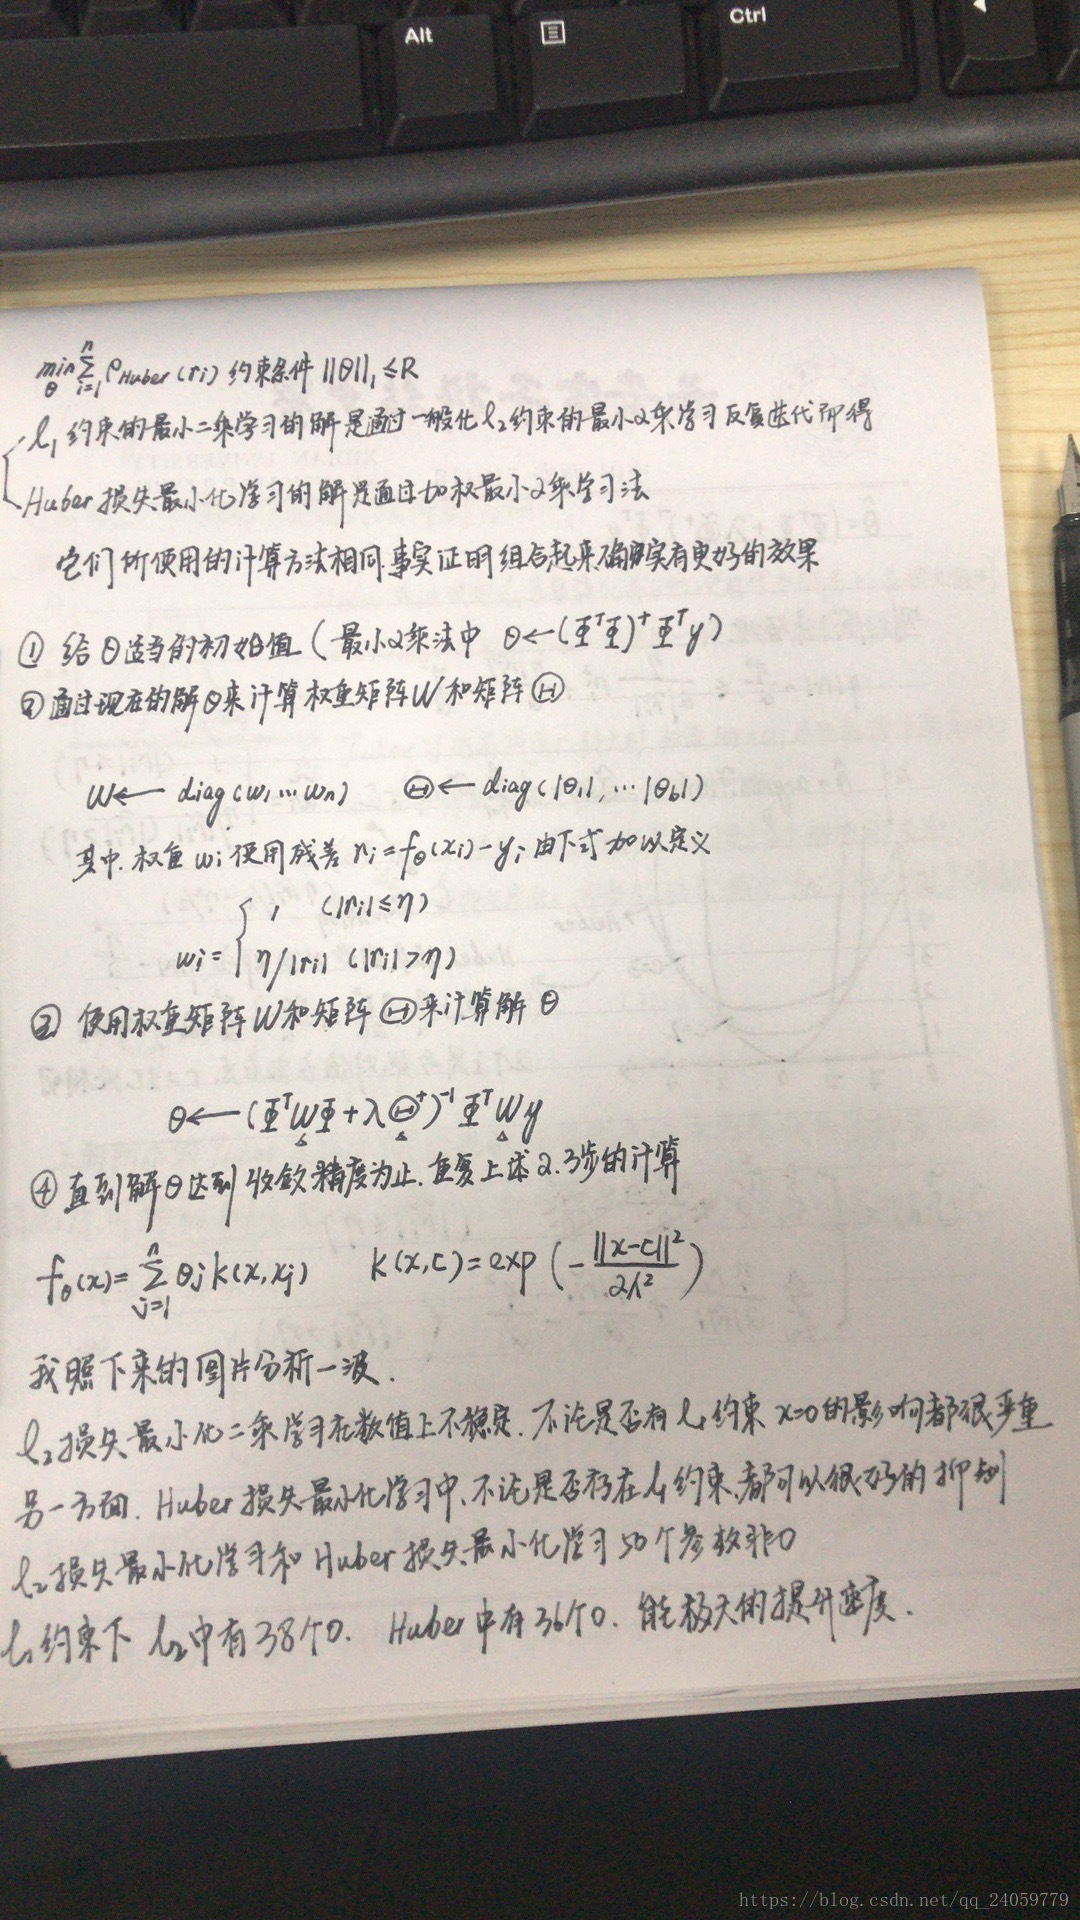 Alt
Ctrl
min_θ Σ_{i=1}^{n} ρ_Huber(ri) 约束条件 ||θ||₁ ≤ R
ℓ₁约束的最小二乘学习的解是通过一般化ℓ₂约束的最小2乘学习反复迭代而得
Huber损失最小化学习的解是通过加权最小2乘学习法
它们所使用的计算方法相同.事实证明组合起来确实有更好的效果
① 给θ适当的初始值(最小2乘法中 θ←(Φ^TΦ)^+Φ^Ty)
② 通过现在的解θ来计算权重矩阵W和矩阵Θ
W← diag(w₁…wn) Θ← diag(|θ₁|,…|θb|)
其中.权重wi使用残差 ri=fθ(xi)-yi 由下式加以定义
wi= { 1 (|ri|≤η)
η/|ri| (|ri|>η)
③ 使用权重矩阵W和矩阵Θ来计算解θ
θ← (Φ^TWΦ+λΘ^+)^{-1}Φ^TWy
④ 直到解θ达到收敛精度为止.重复上述2.3步的计算
fθ(x)=Σ_{j=1}^{n} θjk(x,xj) K(x,c)=exp(-||x-c||²/2λ²)
我照下来的图片分析一波.
ℓ₂损失最小化二乘学习在数值上不稳定.不论是否有ℓ₁约束 x=0的影响都很严重
另一方面.Huber损失最小化学习中,不论是否存在ℓ₁约束,都可以很好的抑制
ℓ₂损失最小化学习和Huber损失最小化学习50个参数非0
ℓ₁约束下 ℓ₂中有38个0. Huber中有36个0. 能极大的提升速度.
https://blog.csdn.net/qq_24059779